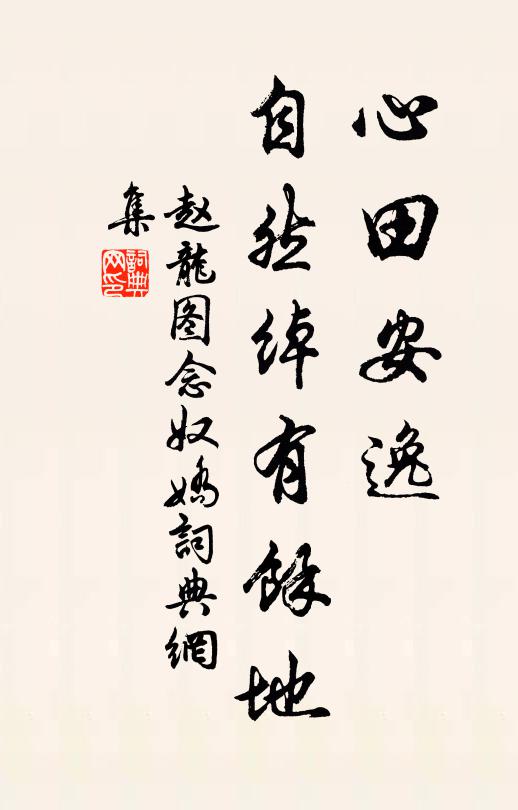 心田安逸
自然绰有馀地
赵龍图念奴嬌詞典網
集
詞典
网印